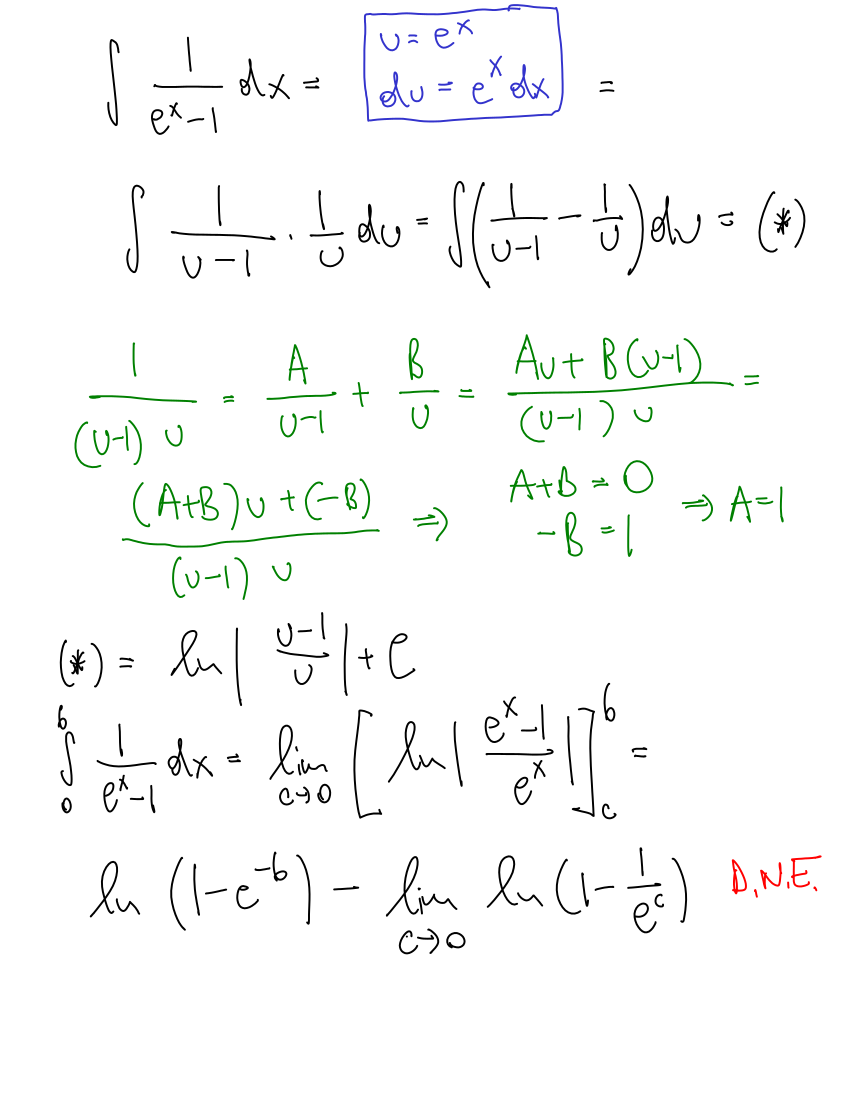 ∫ 1/(eˣ-1) dx = [u = eˣ, du = eˣ dx] =
∫ 1/(u-1) · 1/u du = ∫(1/(u-1) - 1/u) du = (*)
1/((u-1) u) = A/(u-1) + B/u = (Au + B(u-1))/((u-1) u) =
((A+B)u + (-B))/((u-1) u) ⇒ A+B = 0, -B = 1 ⇒ A=1
(*) = ln|(u-1)/u| + C
∫₀ᵇ 1/(eˣ-1) dx = lim_{c→0} [ln|(eˣ-1)/eˣ|]_c^b =
ln (1-e^{-b}) - lim_{c→0} ln(1 - 1/e^c) D.N.E.